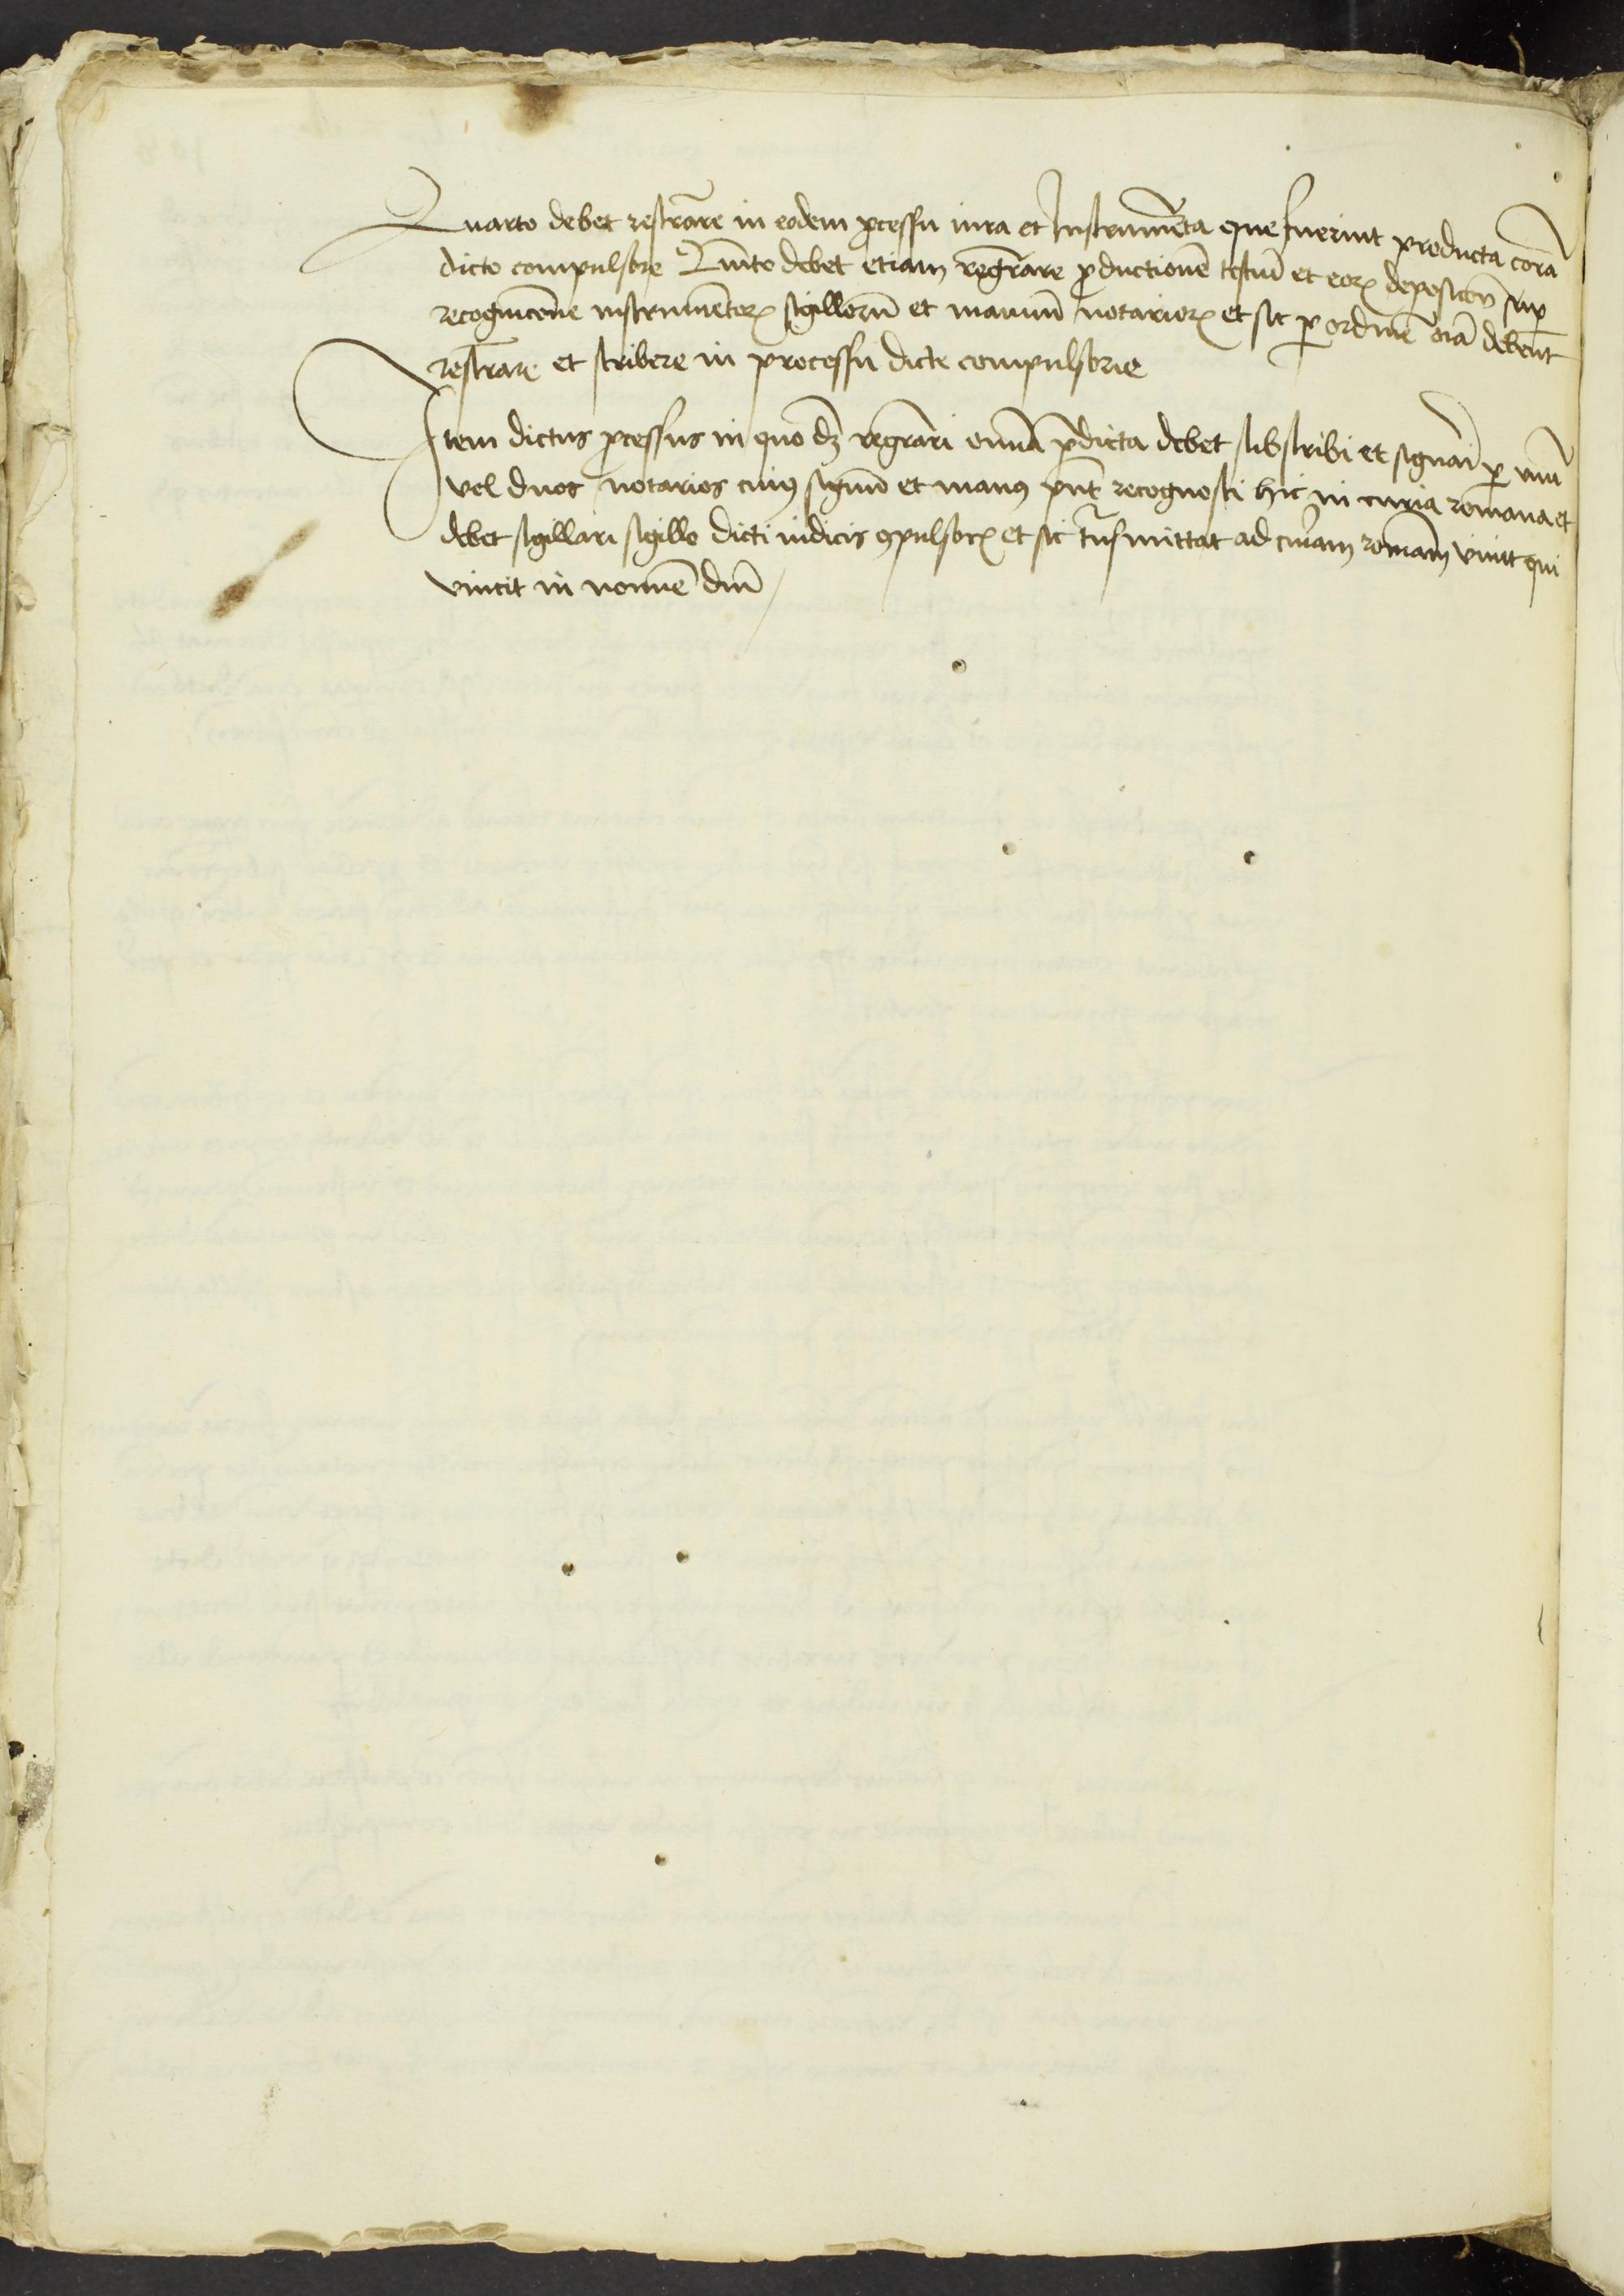 Quarto debet restrãre in eodem ꝓcessu iura et Instrumẽta que fuerint producta corã
dicto compulsore Quĩto debet etiam regrãre ꝓductionẽ testiũ et eoꝝ depositõẽ suꝑ
recognicõne instrumẽtoꝝ sigilloꝝũ et manuũ notarioꝝ et sic ꝑ ordinẽ oĩa debẽt
restrare et scribere in processu dicte compulsorie
Item dictus ꝓcessus in quo dꝫ regrãri omĩa p̃dicta debet subscribi et signari ꝑ vnũ
vel duos notarios cuiꝰ signũ et manꝰ pñt recognosci hic in curia romana et
debet sigillari sigillo dicti iudicis ꝯpulsoꝝ et sic trãsmittat ad curiam romanam vincit qui
vincit in nomine dñi